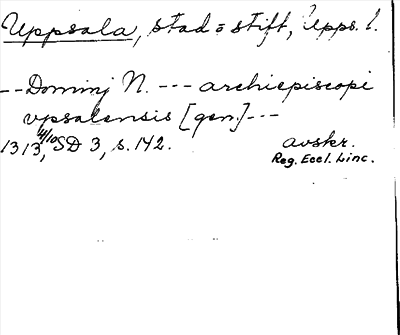 Uppsala, stad o stift, Upps. l.
--Dominj N. --- archiepiscopi
vpsalensis [gen.]---
1313 4/10, SD 3, s. 142. avskr.
Reg. Eccl. Linc.